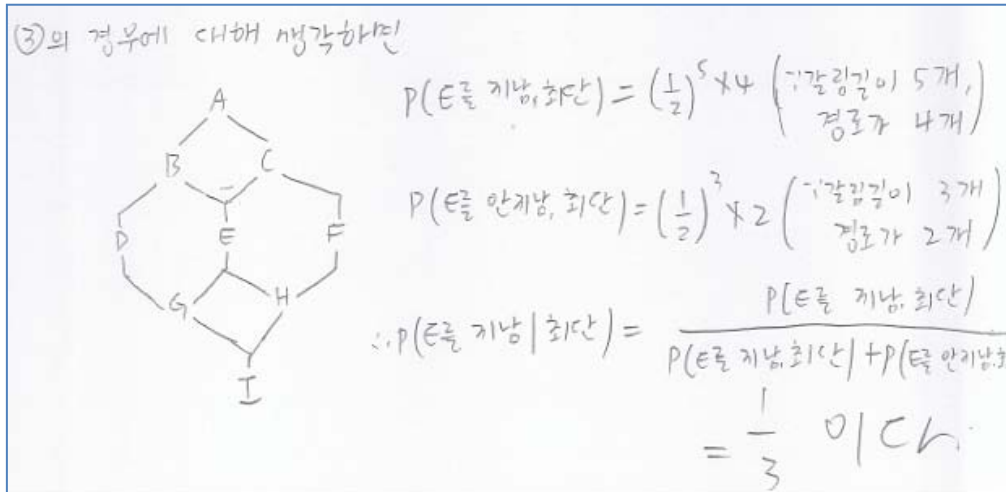 ③의 경우에 대해 생각하면
A
B C
D E F
G H
I
P(E를 지남, 최단) = (1/2)^5 × 4 (∵갈림길이 5개,
경로가 4개)
P(E를 안지남, 최단) = (1/2)^3 × 2 (∵갈림길이 3개
경로가 2개)
∴P(E를 지남 | 최단) = P(E를 지남, 최단) / P(E를 지남, 최단) + P(E를 안지남, 최
= 1/3 이다.